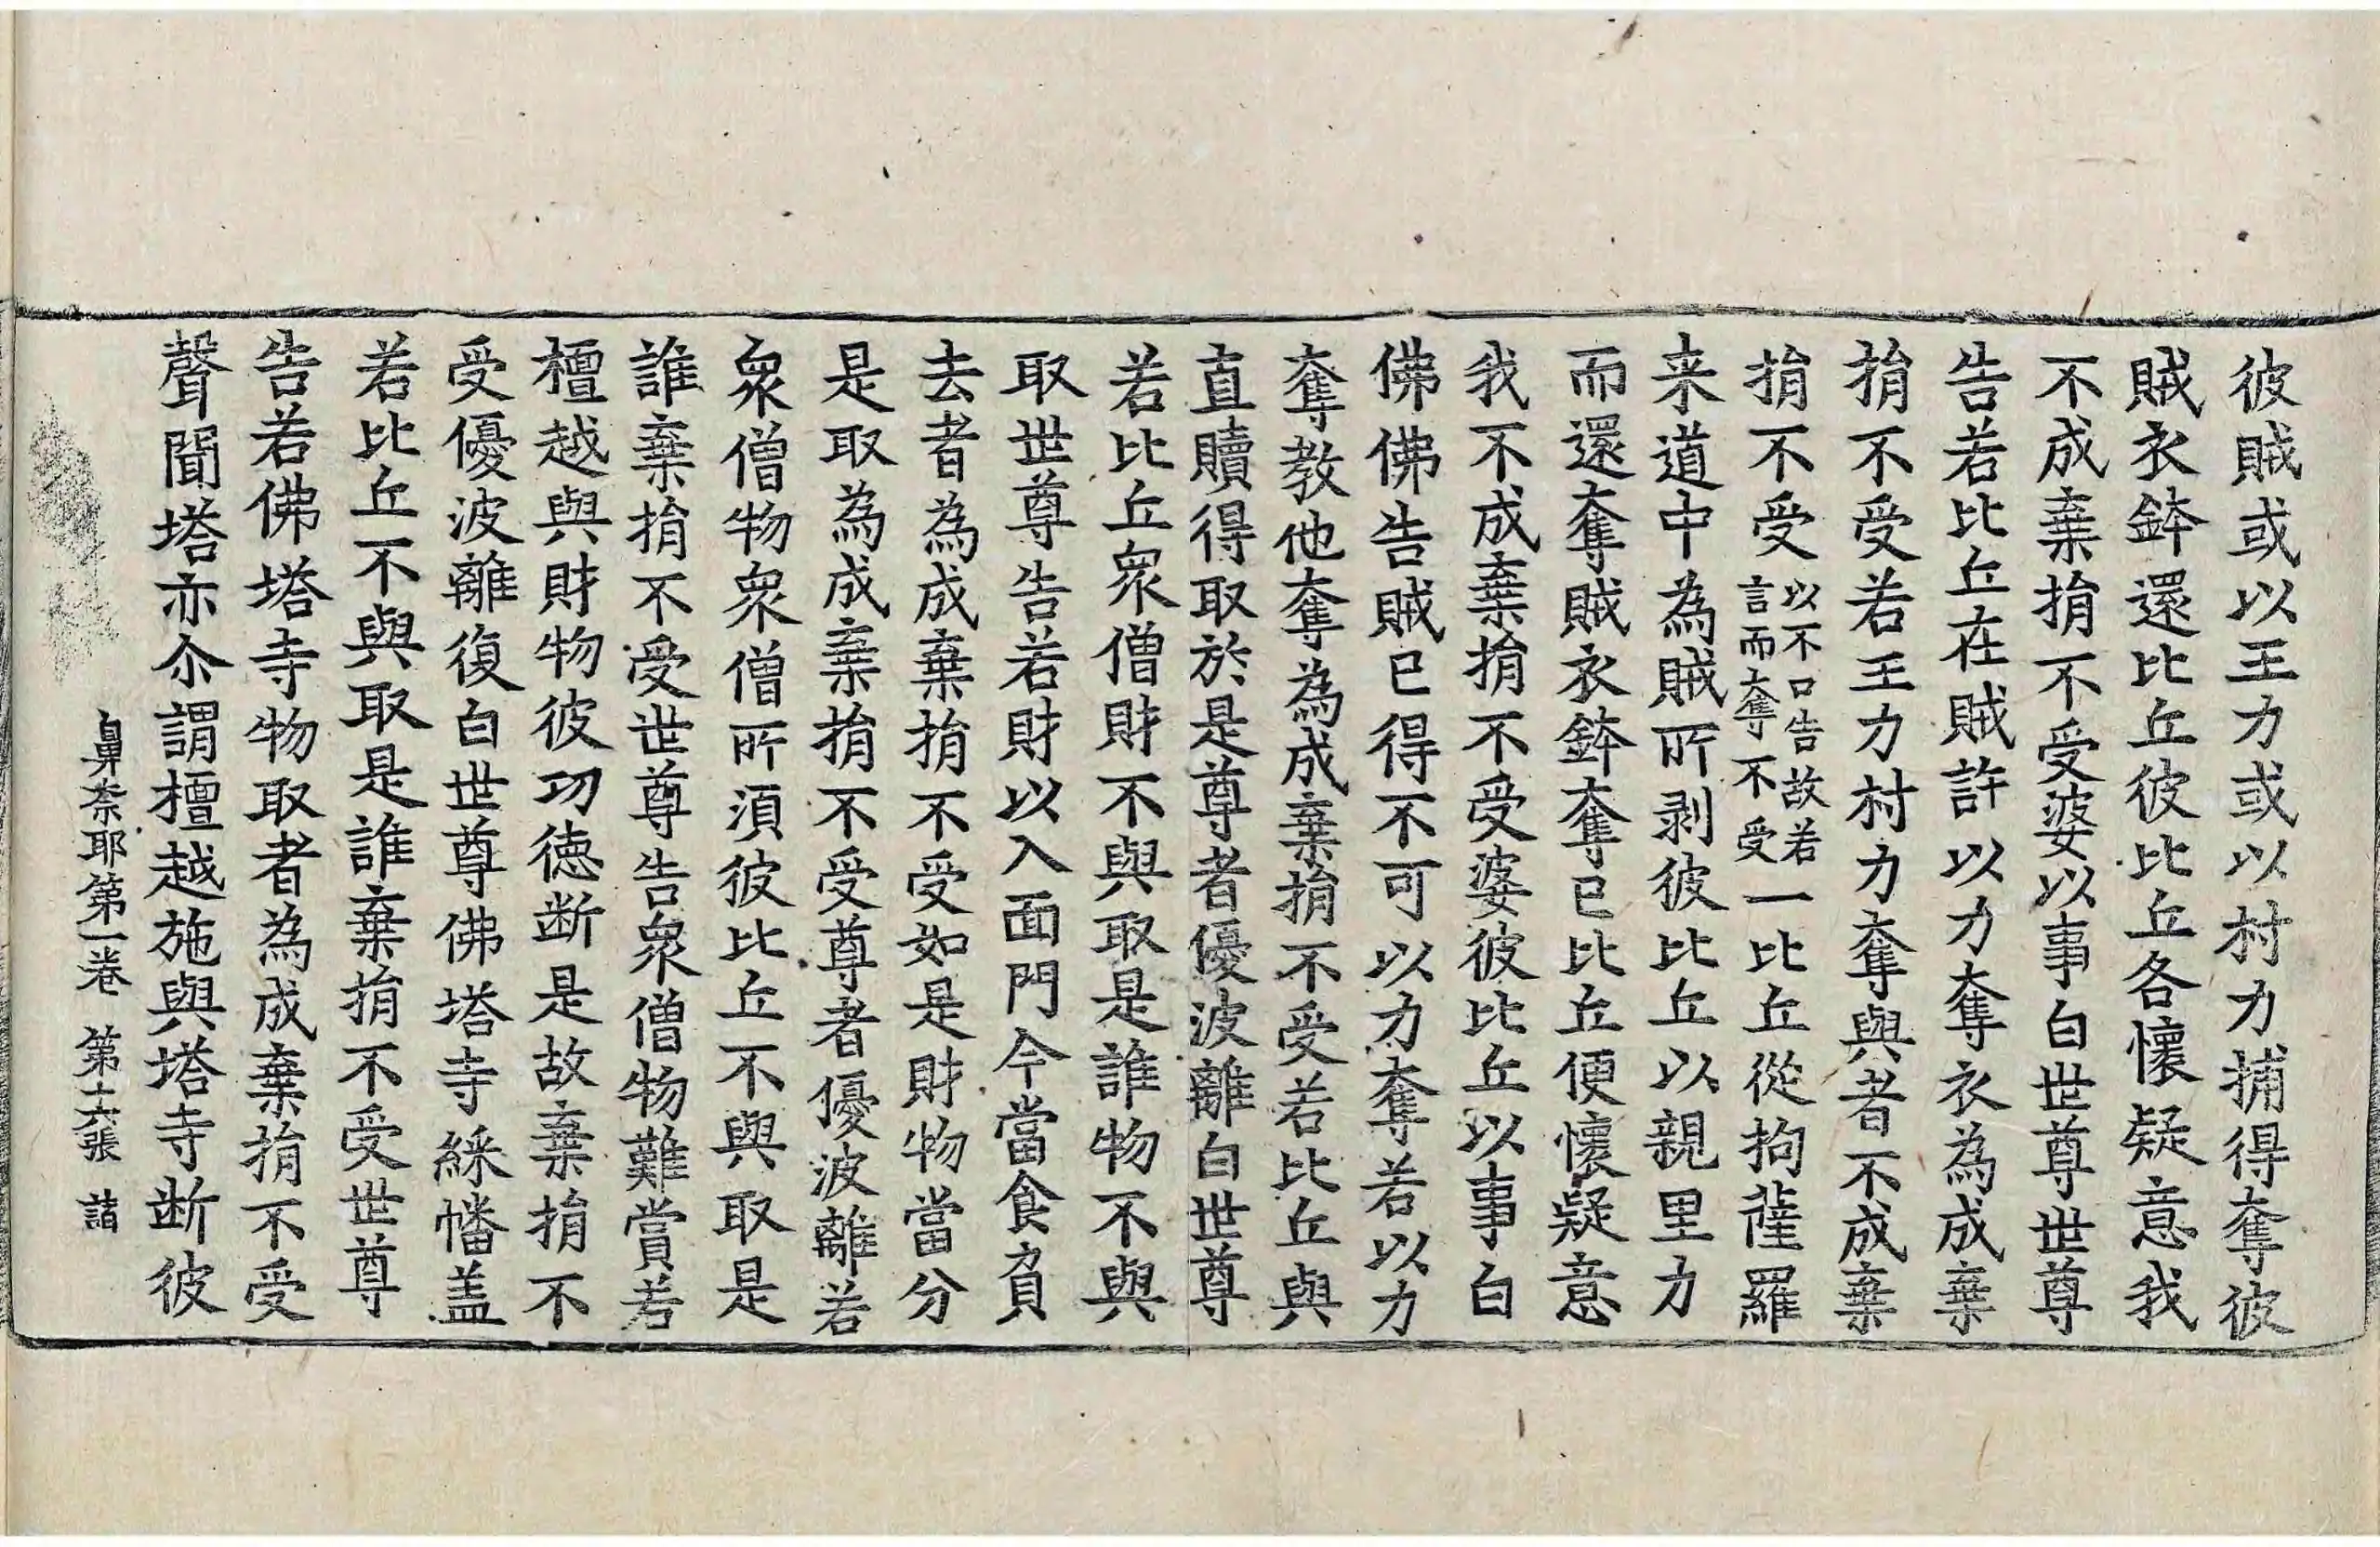 彼賊或以王力或以村力捕得奪彼
賊衣鉢還比丘彼比丘各懷疑意我
不成棄捐不受婆以事白世尊世尊
告若比丘在賊許以力奪衣為成棄
捐不受若王力村力奪與者不成棄
捐不受以不口告故若言而奪不受一比丘從拘薩羅
来道中為賊所剥彼比丘以親里力
而還奪賊衣鉢奪已比丘便懷疑意
我不成棄捐不受婆彼比丘以事白
佛佛告賊已得不可以力奪若以力
奪教他奪為成棄捐不受若比丘與
直贖得取於是尊者優波離白世尊
若比丘衆僧財不與取是誰物不與
取世尊告若財以入面門今當食負
去者為成棄捐不受如是財物當分
是取為成棄捐不受尊者優波離若
衆僧物衆僧所須彼比丘不與取是
誰棄捐不受世尊告衆僧物難賞若
檀越與財物彼功徳断是故棄捐不
受優波離復白世尊佛塔寺綵幡盖
若比丘不與取是誰棄捐不受世尊
告若佛塔寺物取者為成棄捐不受
聲聞塔亦尒謂檀越施與塔寺断彼
鼻奈耶第一卷 第十六張 諸